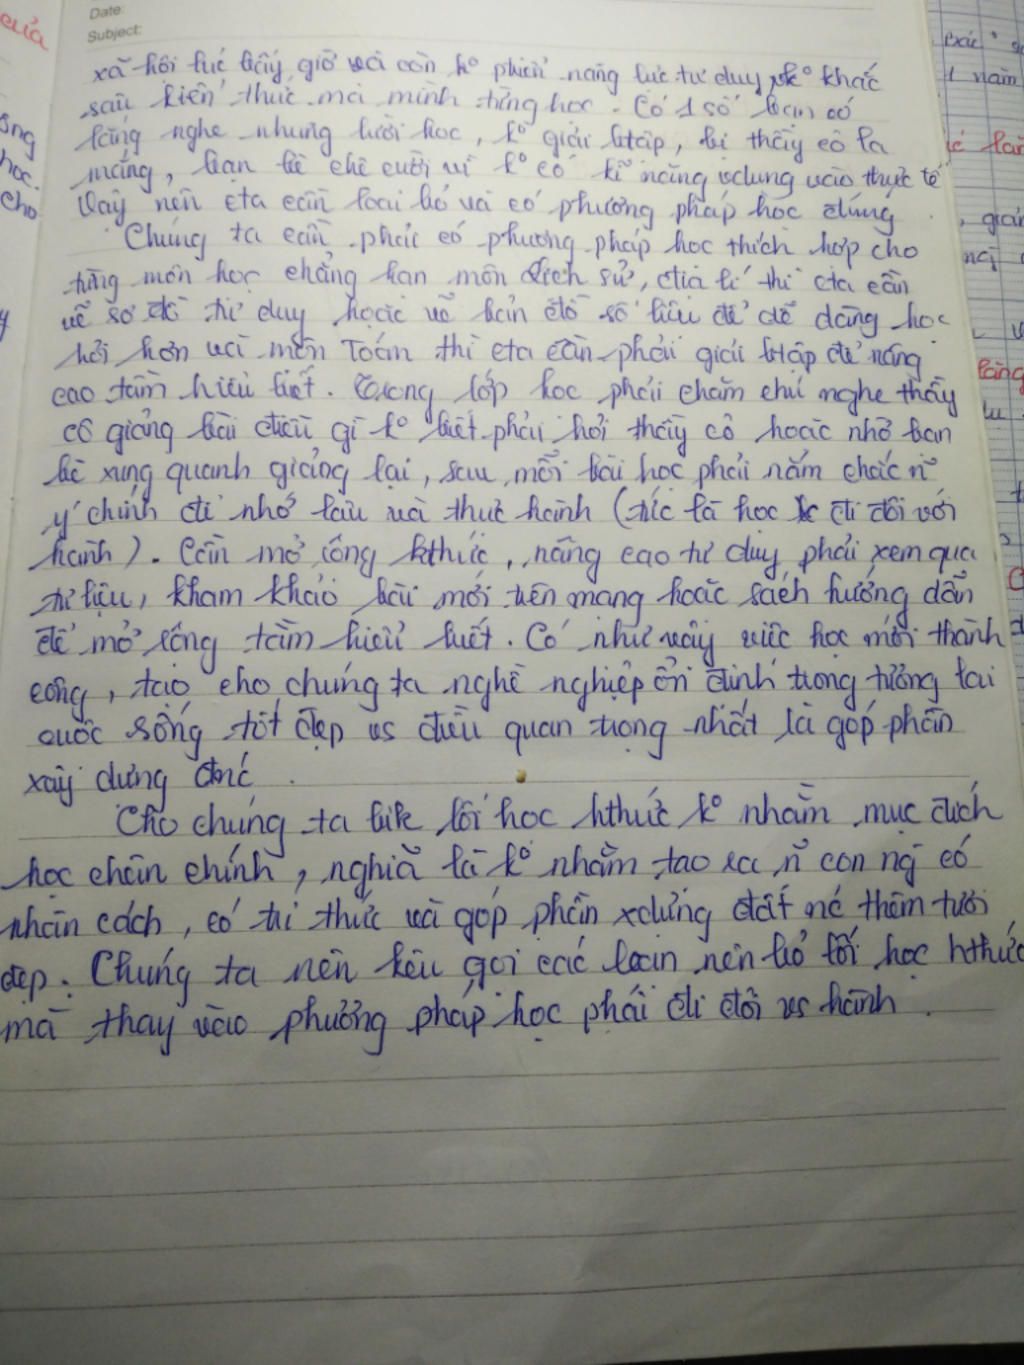 Date:
Subject:
xã hội lúc bấy giờ và còn ko phát năng lực tư duy, ko khắc
sâu kiến thức mà mình từng học. Có 1 số bạn có
lắng nghe nhưng lười học, ko giải btập, bị thầy cô la
mắng, bạn bè chê cười vì ko có kĩ năng vdụng vào thực tế
Vậy nên cta cần loại bỏ và có phương pháp học đúng
Chúng ta cần phải có phương pháp học thích hợp cho
từng môn học chẳng hạn môn Lịch sử, địa lí thì cta cần
vẽ sơ đồ tư duy hoặc vẽ bản đồ số liệu để dễ dàng học
hỏi hơn với môn Toán thì cta cần phải giải btập để nâng
cao tầm hiểu biết. Trong lớp học phải chăm chú nghe thầy
cô giảng bài điều gì ko biết phải hỏi thầy cô hoặc nhờ bạn
bè xung quanh giảng lại, sau mỗi bài học phải nắm chắc n~
ý chính để nhớ lâu và thực hành (tức là học đi đôi với
hành). Cần mở rộng kthức, nâng cao tư duy phải xem qua
tư liệu, tham khảo bài mới trên mạng hoặc sách hướng dẫn
để mở rộng tầm hiểu biết. Có như vậy việc học mới thành
công, tạo cho chúng ta nghề nghiệp ổn định trong tương lai
cuộc sống tốt đẹp vs điều quan trọng nhất là góp phần
xây dựng đnc.
Cho chúng ta biết lối học hthức ko nhằm mục đích
học chân chính, nghĩa là ko nhằm tạo ra n~ con ng có
nhân cách, có tri thức và góp phần xdựng đất nc thêm tươi
đẹp. Chúng ta nên kêu gọi các bạn nên bỏ lối học hthức
mà thay vào phương pháp học phải đi đôi vs hành.